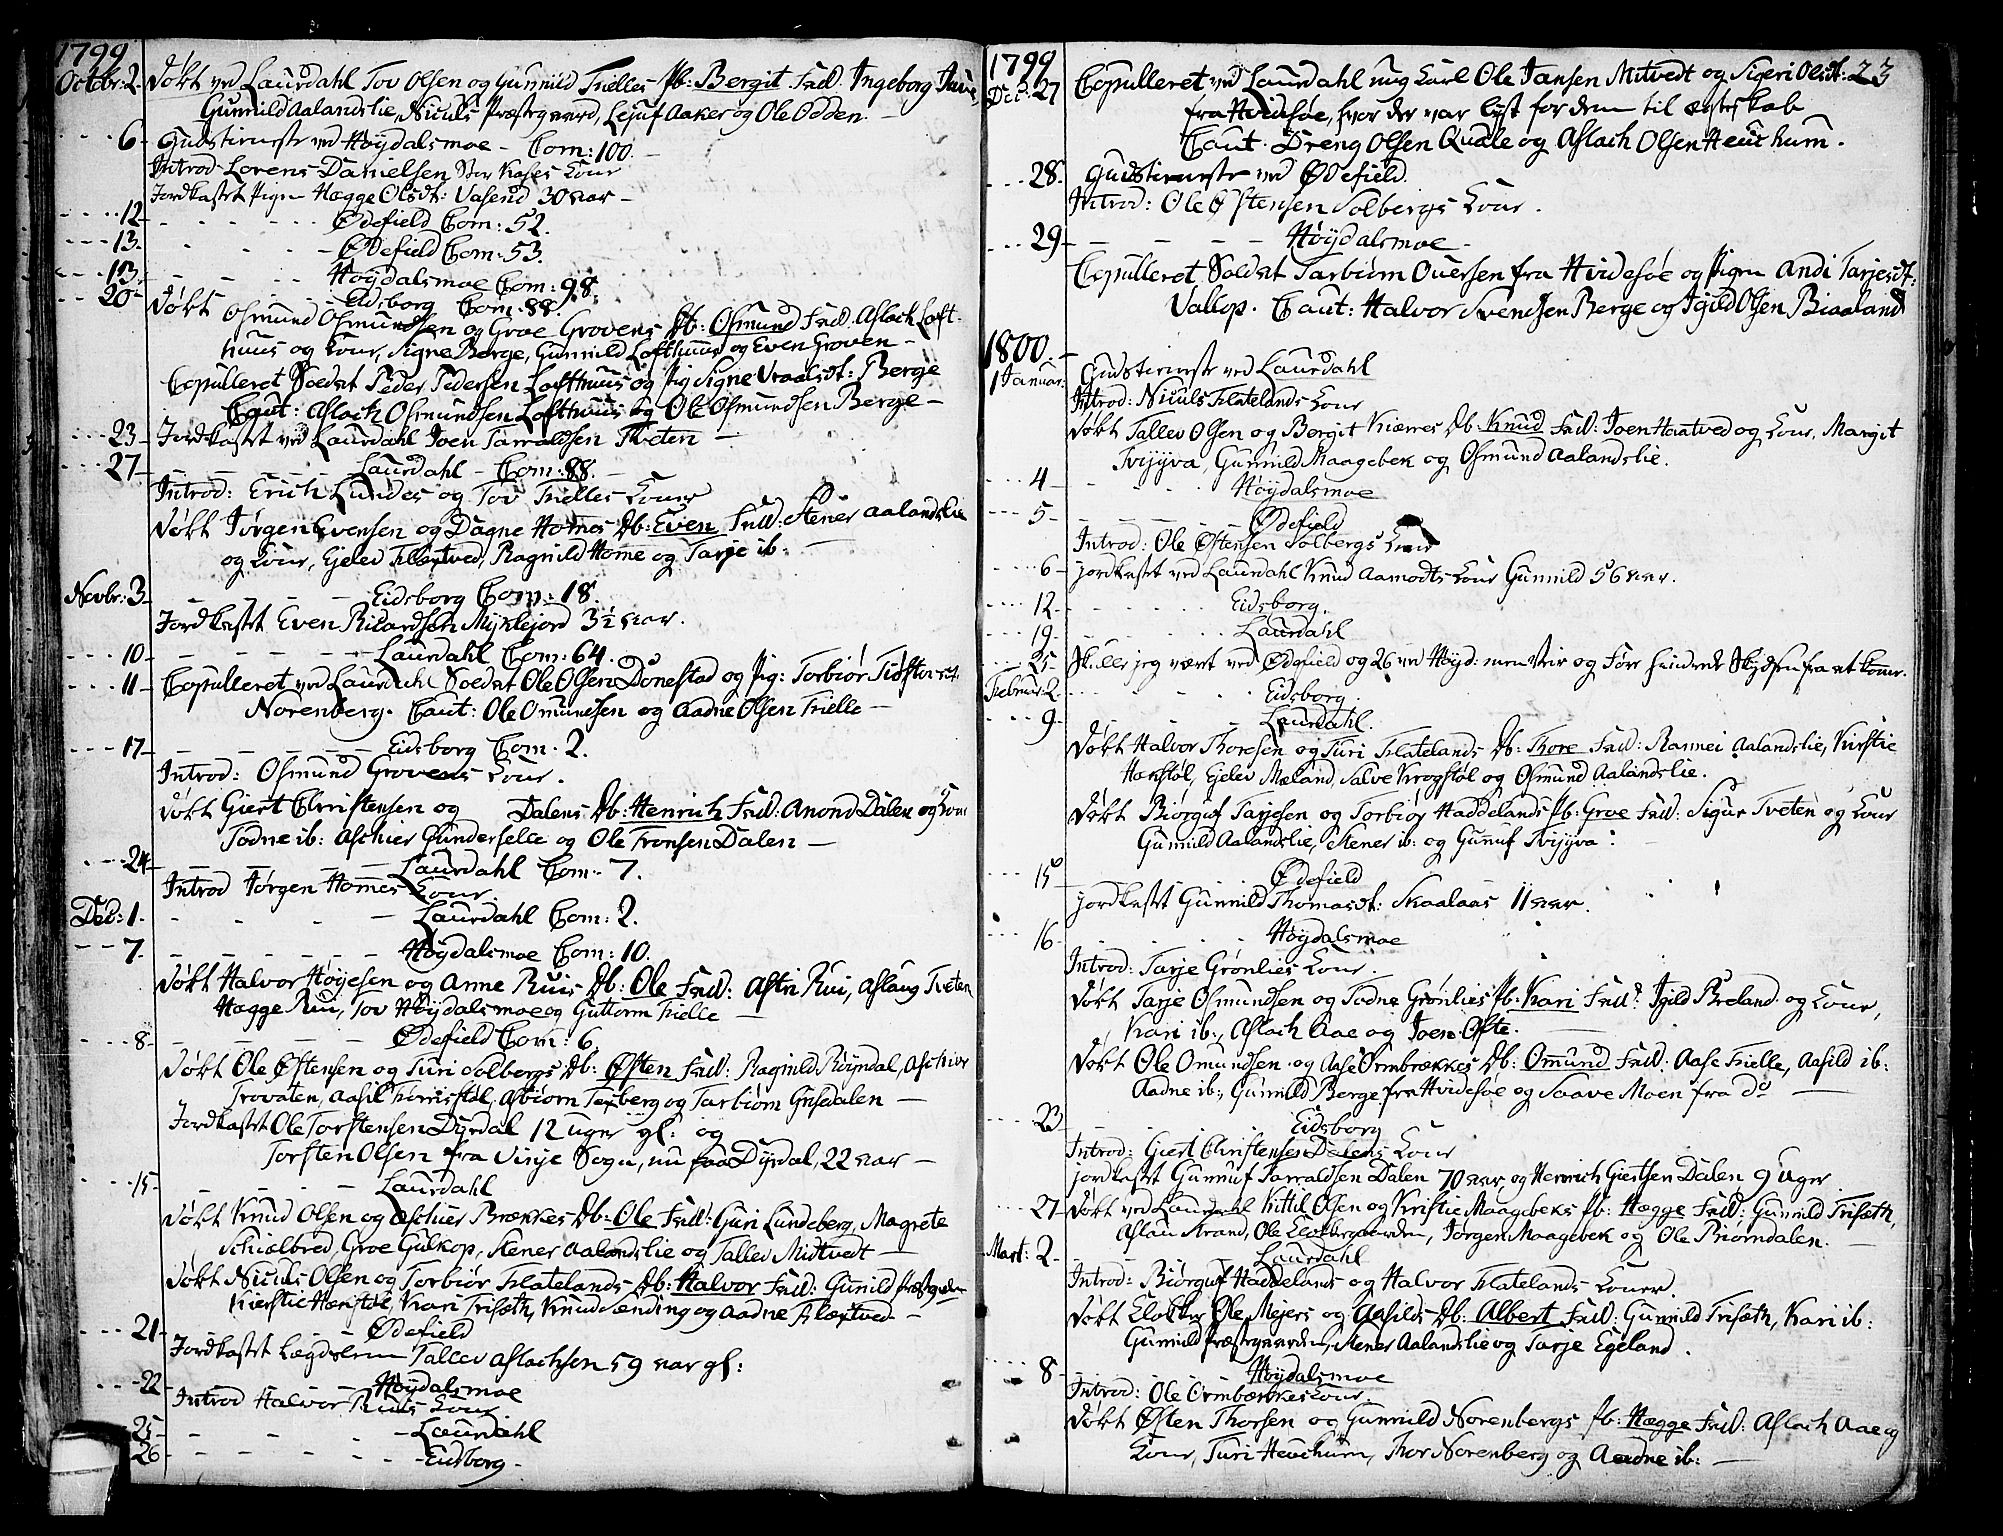 1799
Octbr: 2. Døbt ved Laurdahl Tov Olsen og Gunnild Trielles Pb: Bergit Fad. Ingeborg
Gunnild Aalandslie, Niculs Præstegaard, Lejuf Aaker og Ole Odden.
6 Gudstieneste ved Høydalsmoe - Com: 100.
Introd Lorens Danielsen Kone
Jordkastet Pigen Hægge Olsdt: Vasend 30 aar
12 Ødefield Com: 52.
13. Ødefield Com: 53.
13. Høydalsmoe Com: 98.
20 Eidsborg Com. 88.
Døbt Osmund Osmundsen og Groe Grovens Db: Osmund Fad. Aslach Loft-
huus og Kone, Signe Berge, Gunnild Lofthuus og Even Groven -
Copulleret Soldat Peder Pedersen Lofthuus og Pig Signe Uraalsdt: Berge
Caut: Aslach Osmundsen Lofthuus og Ole Osmundsen Berge -
23 Jordkastet ved Laurdahl Joen Tarraldsen Tveten -
27 Laurdahl - Com: 88.
Introd: Erich Lundes og Tov Trielles Koner
Døbt Jørgen Evensen og Dagne Homes Db: Even Fad: Stener Aalandslie
og Kone, Ejelev, Ragnild Home og Tarje ib:
Novbr: 3 Eidsborg Com: 18.
Jordkastet Even Ricardsen Myklejord 3½ aar.
10 Laurdahl Com: 64.
11 Copulleret ved Laurdahl Soldat Ole Olsen Dønestad og Pig: Torbiør
Norenberg. Caut: Ole Omundsen og Aadne Olsen Trielle -
17 Eidsborg Com. 2.
Introd: Osmund Grovens Kone.
Døbt Giert Christensen og Dalens Db: Henrich Fad: Anond Dalen og Kone
Todne ib: Aschier Gunderselle og Ole Tronsen Dalen -
24 Laurdahl Com: 7.
Introd Jørgen Homes Kone
Dec: 1. Laurdahl Com: 2.
7. Høydalsmoe Com: 10.
Døbt Halvor Høyesen og Anne Ruis Db: Ole Fad: Astri Rui, Aslaug Tveten
Hægge Rui, Tov Høydalsmoe og Guttorm Trielle -
8 Ødefield Com: 6.
Døbt Ole Østensen og Turi Solbergs Db: Østen Fad: Ragnild Røyndal, Aschier
Trovaten, Aasil, Asbiørn og Tarbiørn Grisedalen -
Jordkastet Ole Torstensen Dyrdal 12 uger gl: og
Torsten Olsen fra Vinje Sogn, nu Dyrdal, 22 aar -
15 Laurdahl
Døbt Knud Olsen og Aschier Brækkes Db: Ole Fad: Guri Lundeberg, Magrete
Schiælbred, Groe Gulkop, Stener Aalandslie og Tallev Midtvedt -
Døbt Niculs Olsen og Torbiør Flatelands Db: Halvor Fad: Gunild
Kierstie Hæxstøl, Kari Trisæth, Knud og Aadne
21 Ødefield
Jordkastet Lægdslem Tallev Aslachsen 59 aar gl:
22 Høydalsmoe
Introd Halvor Ruis Kone
25 Laurdahl
26 Eidsborg -
1799 23
Dec. 27 Copulleret ved Laurdahl ung Karl Ole Jansen Mitvedt og Sigeri Olsdt:
fra Hvidesøe, hvor der var lyst for dem til ægteskab
Caut. Dreng Olsen Quale og Aslach Olsen Heuchum.
28. Gudstieneste ved Ødefield.
Introd: Ole Østensen Solbergs Kone.
29 Høydalsmoe -
Copulleret Soldat Tarbiørn Ouersen fra Hvidesøe og Pigen Andi Tarjesdt:
Valkop. Caut: Halvor Svendsen Berge og Igild Olsen Biaaland
1800.
1 Januar: Gudstieneste ved Laurdahl
Introd: Niculs Flatelands Kone
Døbt Tallev Olsen og Bergit Kiærres Db: Knud Fad: Joen Haatved og Kone, Margit
Tvijyva, Gunnild Maagebek og Osmund Aalandslie.
4 Høydalsmoe
5 Ødefield
Introd: Ole Østensen Solbergs Kone
6 jordkastet ved Laurdahl Knud Aamodts Kone Gunnild 56 aar.
12 Eidsborg.
19 Laurdahl
25 Skulle jeg vært ved Ødefield og 26 ved Høyd: men Veir og Føre hindrede Skydsen fra at komme.
Februar: 2. Eidsborg.
9 Laurdahl.
Døbt Halvor Thoresen og Turi Flatelands Db: Thore Fad: Rannei Aalandslie, Kirstie
Hæxstøl, Ejelev Mæland, Salve Krogstøl og Osmund Aalandslie.
Døbt Biørguf Tarjesen og Torbiør Haddelands Pb: Groe Fad: Sigur Tveten og Kone
Gunnild Aalandslie, Stener ib: og Gunuf Tvijyva.
15 Ødefield
jordkastet Gunnild Thomasdt: Skaalaas 11 aar.
16 Høydalsmoe
Introd: Tarje Grønlies Kone.
Døbt Tarje Osmundsen og Todne Grønlies Pb: Kari Fad: Igild Breland og Kone,
Kari ib:, Aslach Aae og Joen Ofte.
Døbt Ole Omundsen og Aase Ormbrækkes Db: Omund Fad: Aase Trielle, Aasild ib:
Aadne ib:, Gunnild Berge fra Hvidesøe og Saave Moen fra do
23 Eidsborg
Introd: Giert Christensen Dalens Kone
jordkastet Gunnuf Tarraldsen Dalen 70 aar og Henrich Giertsen Dalen 9 uger
27 Døbt ved Laurdahl Kittil Olsen og Kirstie Maagebeks Pb: Hægge Fad: Gunnild Trisæth,
Aslau Strand, Ole Klokkergaarden, Jørgen Maagebek og Ole Biørndalen.
Mart: 2 Laurdahl
Introd: Biørguf Haddelands og Halvor Flatelands Koner.
Døbt Klokker Ole Mejers og Aasilds Db: Albert Fad: Gunnild Trisæth, Kari ib:
Gunnild Præstegaarden, Stener Aalandslie og Tarje Egeland.
8 Høydalsmoe
Introd: Ole Ormbrækkes Kone.
Døbt Østen Thorsen og Gunnild Norenbergs Pb: Hægge Fad: Aslach Aae og
Kone, Turi Heuchum, Thor Norenberg og Aadne ib: -